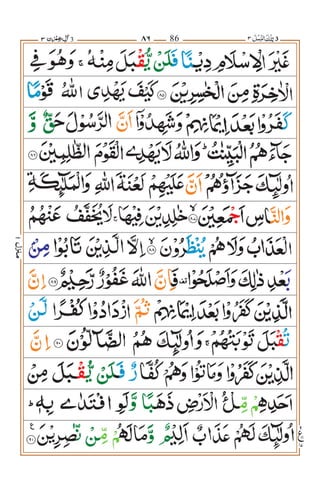 اٰل عمرٰن ٣ ٨٦ 86 تلك الرسل ٣
غَيْرَ الْاِسْلَامِ دِيْنًا فَلَنْ يُّقْبَلَ مِنْهُ ۚ وَهُوَ فِى
الْاٰخِرَةِ مِنَ الْخٰسِرِيْنَ ﴿٨٥﴾ كَيْفَ يَهْدِى اللّٰهُ قَوْمًا
كَفَرُوْا بَعْدَ اِيْمَانِهِمْ وَشَهِدُوْٓا اَنَّ الرَّسُوْلَ حَقٌّ وَّ
جَآءَهُمُ الْبَيِّنٰتُ ؕ وَاللّٰهُ لَا يَهْدِى الْقَوْمَ الظّٰلِمِيْنَ ﴿٨٦﴾
اُولٰٓئِكَ جَزَآؤُهُمْ اَنَّ عَلَيْهِمْ لَعْنَةَ اللّٰهِ وَالْمَلٰٓئِكَةِ
وَالنَّاسِ اَجْمَعِيْنَ ﴿٨٧﴾ خٰلِدِيْنَ فِيْهَا ۚ لَا يُخَفَّفُ عَنْهُمُ
الْعَذَابُ وَلَا هُمْ يُنْظَرُوْنَ ﴿٨٨﴾ اِلَّا الَّذِيْنَ تَابُوْا مِنْۢ
بَعْدِ ذٰلِكَ وَاَصْلَحُوْا ۟ فَاِنَّ اللّٰهَ غَفُوْرٌ رَّحِيْمٌ ﴿٨٩﴾ اِنَّ
الَّذِيْنَ كَفَرُوْا بَعْدَ اِيْمَانِهِمْ ثُمَّ ازْدَادُوْا كُفْرًا لَّنْ
تُقْبَلَ تَوْبَتُهُمْ ۚ وَاُولٰٓئِكَ هُمُ الضَّآلُّوْنَ ﴿٩٠﴾ اِنَّ
الَّذِيْنَ كَفَرُوْا وَمَاتُوْا وَهُمْ كُفَّارٌ فَلَنْ يُّقْبَلَ مِنْ
اَحَدِهِمْ مِّلْءُ الْاَرْضِ ذَهَبًا وَّلَوِ افْتَدٰى بِهٖ ؕ
اُولٰٓئِكَ لَهُمْ عَذَابٌ اَلِيْمٌ وَّمَا لَهُمْ مِّنْ نّٰصِرِيْنَ ﴿٩١﴾
منزل ١